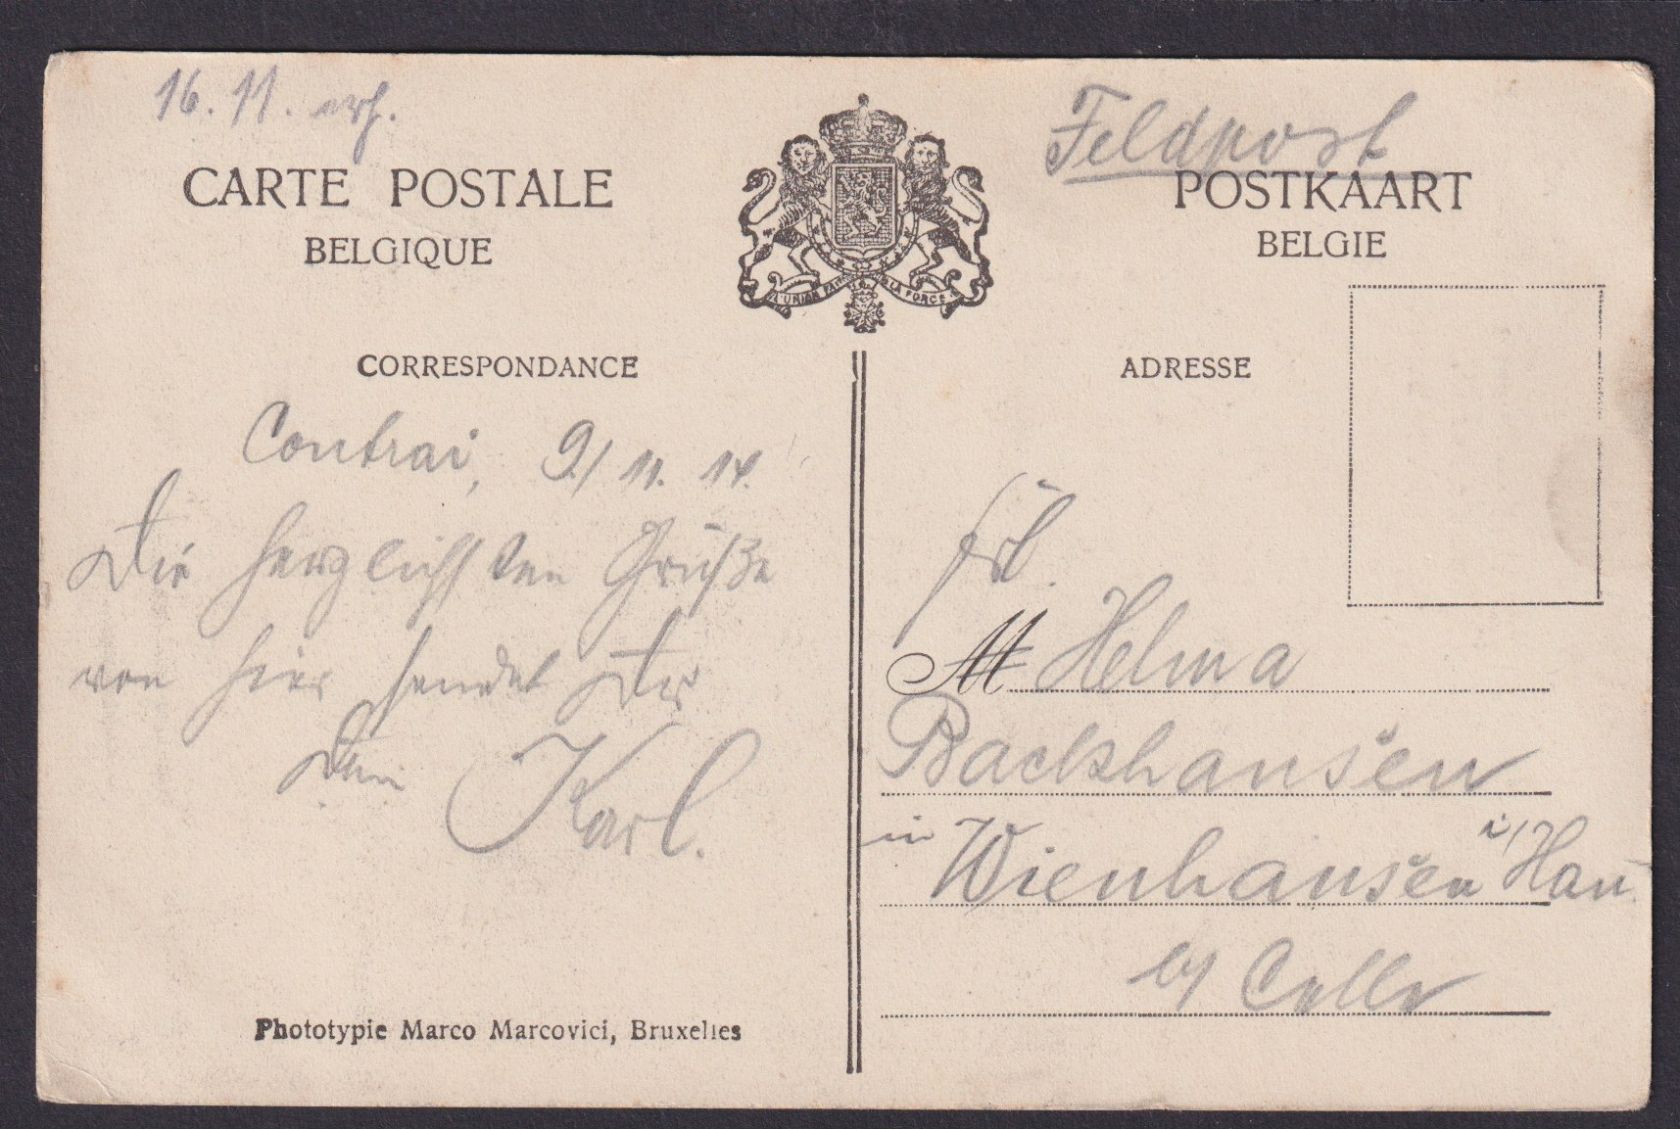 16.11. erh.
Feldpost
CARTE POSTALE
BELGIQUE
L'UNION FAIT LA FORCE
POSTKAART
BELGIE
CORRESPONDANCE
Contrai, 9/11.14.
Die herzlichsten Grüße
von hier sendet Dir
Dein Karl.
Phototypie Marco Marcovici, Bruxelles
ADRESSE
Frl.
M Helma
Backhausen
in Wienhausen i/Han.
b/ Celle